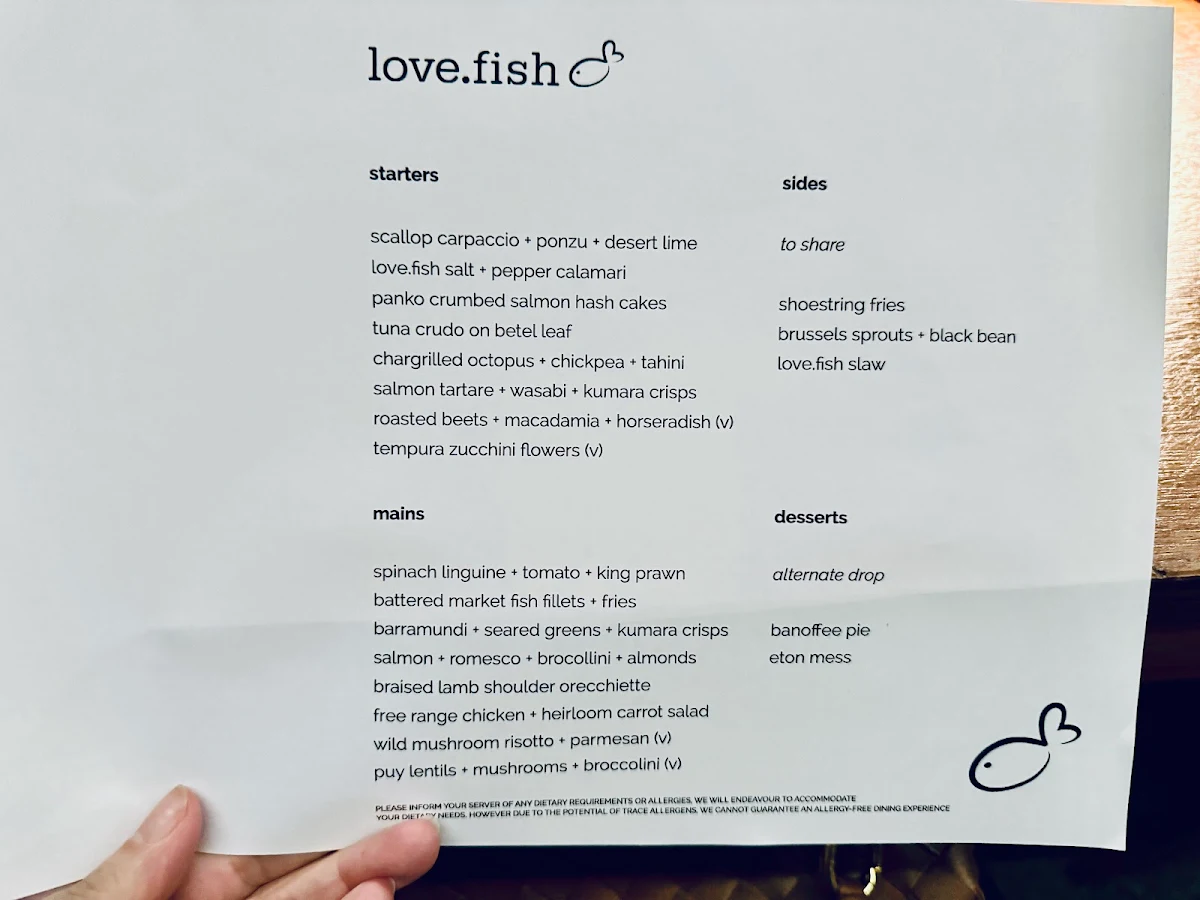 love.fish
starters
scallop carpaccio + ponzu + desert lime
love.fish salt + pepper calamari
panko crumbed salmon hash cakes
tuna crudo on betel leaf
chargrilled octopus + chickpea + tahini
salmon tartare + wasabi + kumara crisps
roasted beets + macadamia + horseradish (v)
tempura zucchini flowers (v)
sides
to share
shoestring fries
brussels sprouts + black bean
love.fish slaw
mains
spinach linguine + tomato + king prawn
battered market fish fillets + fries
barramundi + seared greens + kumara crisps
salmon + romesco + brocollini + almonds
braised lamb shoulder orecchiette
free range chicken + heirloom carrot salad
wild mushroom risotto + parmesan (v)
puy lentils + mushrooms + broccolini (v)
desserts
alternate drop
banoffee pie
eton mess
PLEASE INFORM YOUR SERVER OF ANY DIETARY REQUIREMENTS OR ALLERGIES, WE WILL ENDEAVOUR TO ACCOMMODATE
YOUR DIETARY NEEDS. HOWEVER DUE TO THE POTENTIAL OF TRACE ALLERGENS, WE CANNOT GUARANTEE AN ALLERGY-FREE DINING EXPERIENCE